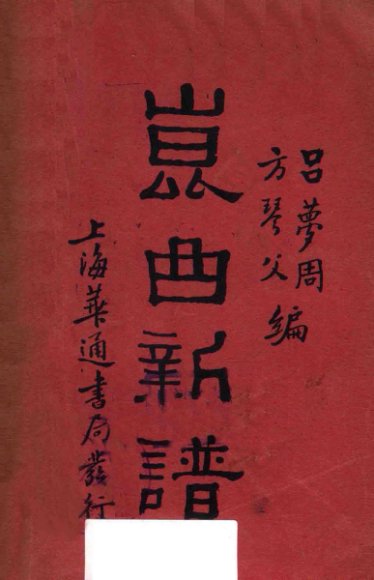 呂夢周
方琴父
編
崑曲新譜
上海華通書局發行